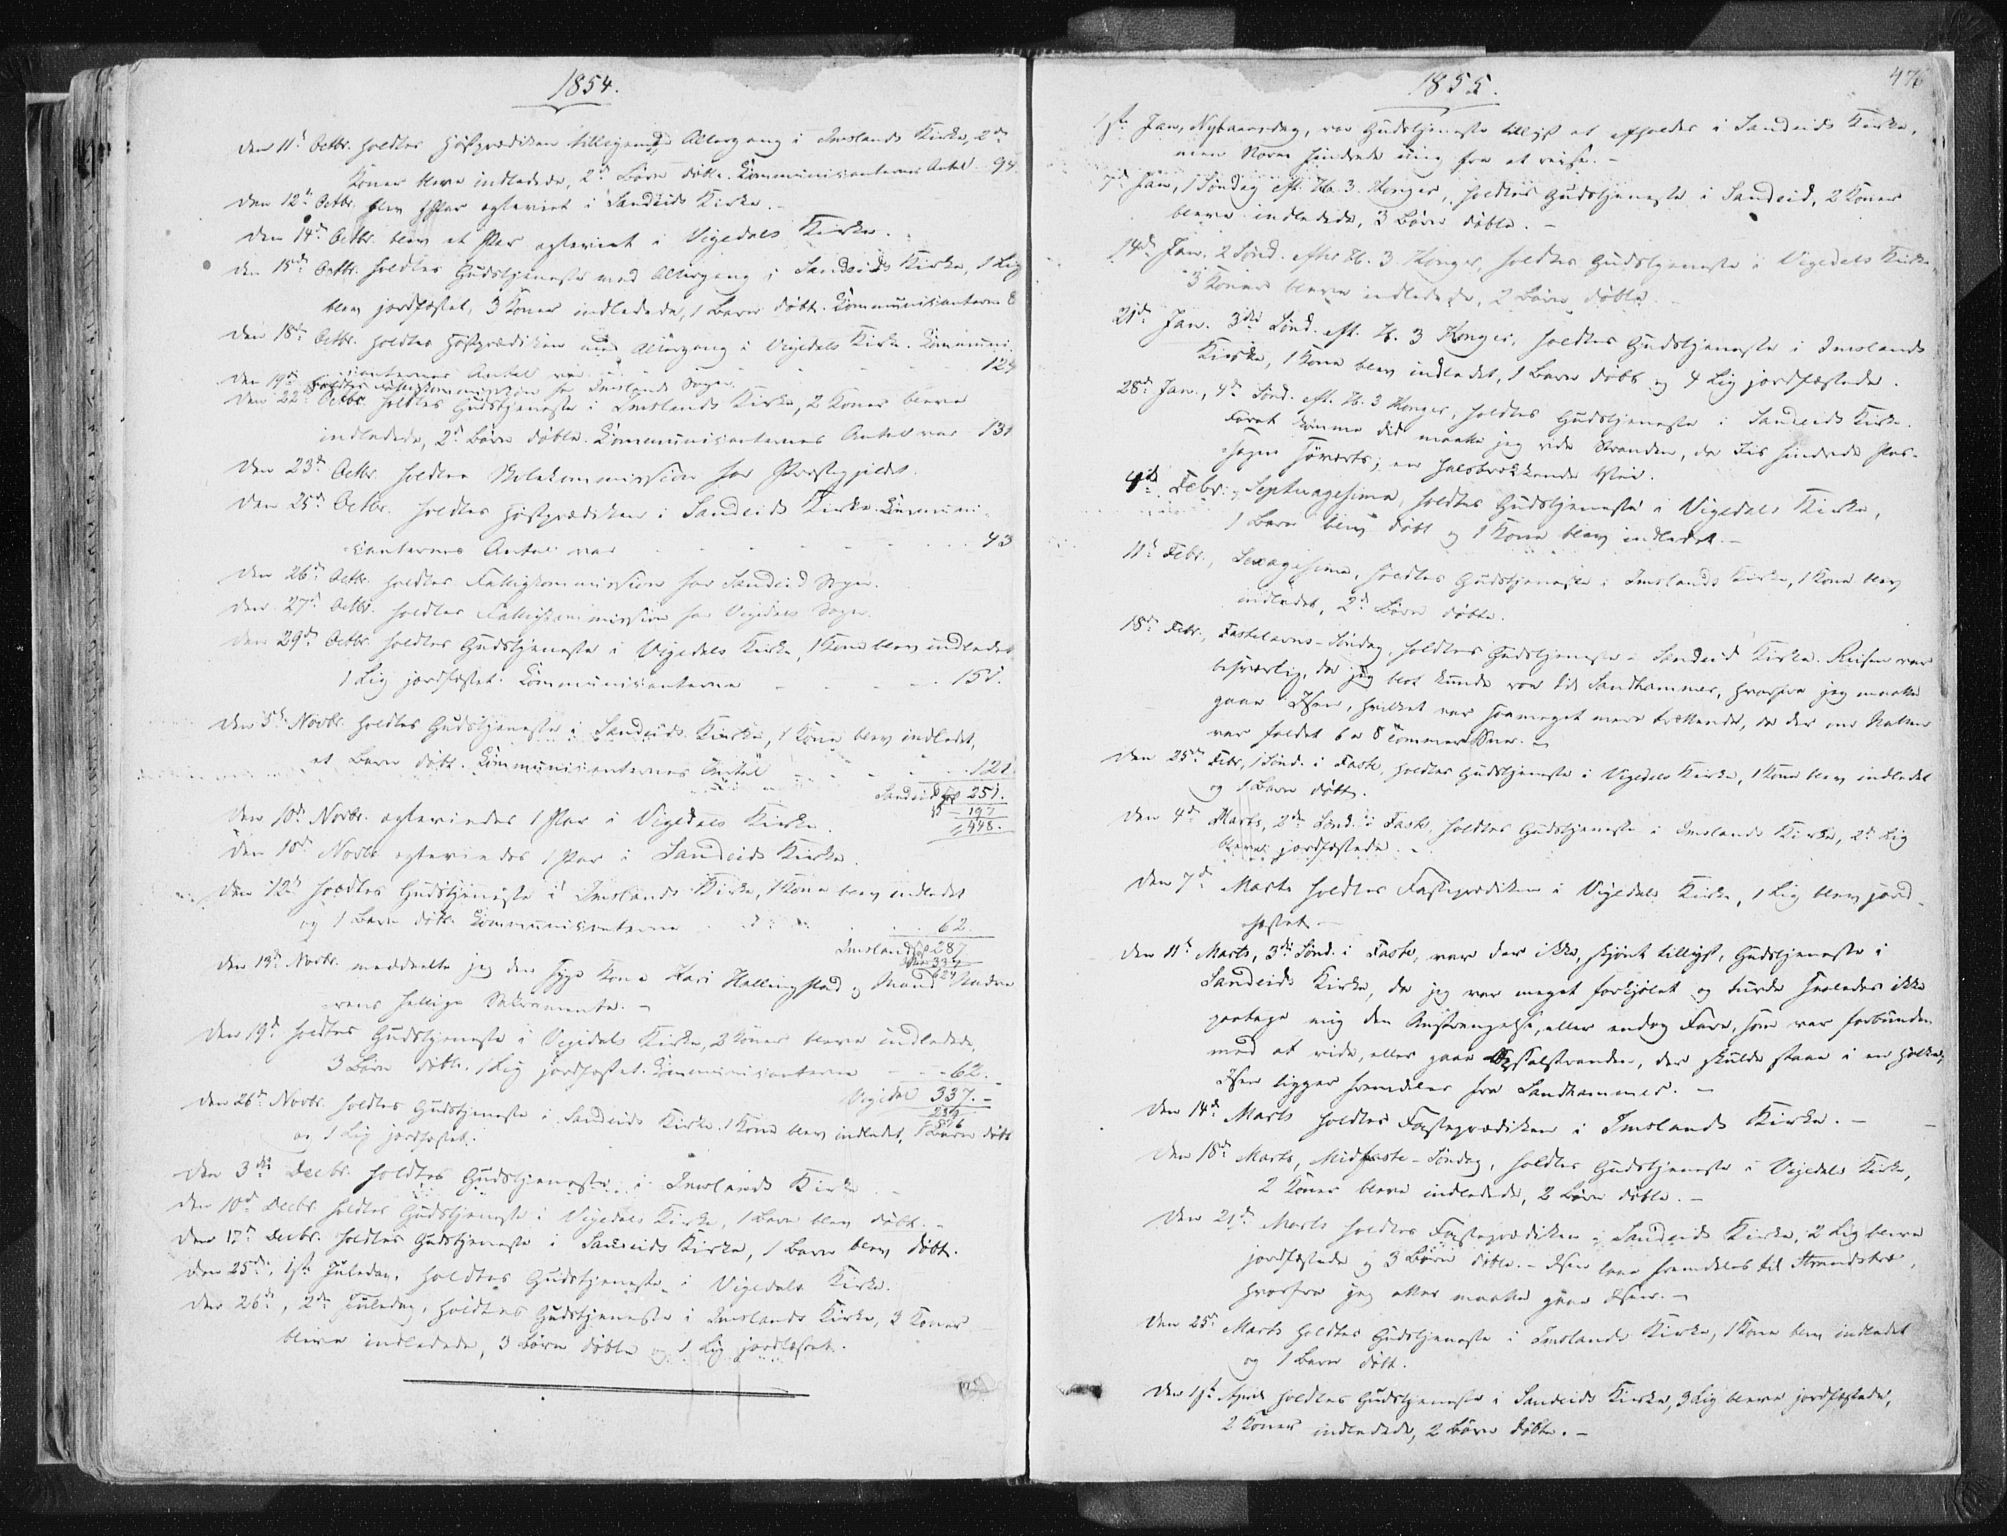 1854.
den 11te Octbr. holdtes Høstprædiken tilligemed Altergang i Imslands Kirke, 2de
Koner bleve indledede, 2de Børn døbte. Kommunicanternes Antal 94
den 12te Octbr. blev 1 Par egteviet i Sandeids Kirke.
den 14de Octbr. blev et Par egteviet i Vigedals Kirke.
den 15de Octbr. holdtes Gudstjeneste med Altergang i Sandeids Kirke, 1 Lig
blev jordfæstet, 3 Koner indledede, 1 Barn døbt. Kommunicanterne 8
den 18de Octbr. holdtes Høstprædiken med Altergang i Vigedals Kirke. Communi-
canternes Antal var 124
den 19de holdtes Fattigkommission for Imslands Sogn.
den 22de Octbr. holdtes Gudstjeneste i Imslands Kirke, 2 Koner bleve
indledede, 2de Børn døbte. Kommunicanternes Antal var 131
den 23de Octbr. holdtes Skolekommission for Præstegjeldet.
den 25de Octbr. holdtes Høstprædiken i Sandeids Kirke. Kommuni-
canternes Antal var 43
den 26de Octbr. holdtes Fattigkommission for Sandeid Sogn.
den 27de Octbr. holdtes Fattigkommission for Vigedals Sogn.
den 29de Octbr. holdtes Gudstjeneste i Vigedals Kirke, 1 Kone blev indledet
1 Lig jordfæstet. Kommunicanterne 151.
den 5te Novbr. holdtes Gudstjeneste i Sandeids Kirke, 1 Kone blev indledet,
et Barn døbt. Kommunicanternes Antal 121
Sandeid 251.
197
448.
den 10de Novbr. egteviedes 1 Par i Vigedals Kirke.
den 10de Novbr. egteviedes 1 Par i Sandeids Kirke.
den 12te holdtes Gudstjeneste i Imslands Kirke, 1 Kone blev indledet
og 1 Barn døbt. Kommunicanterne 62
Imsland 287
337
624
den 13de Novbr. meddeelte jeg den syge Kone Kari Hallingstad og Mand Nadve-
rens hellige Sakramente. –
den 19de holdtes Gudstjeneste i Vigedals Kirke, 2 Koner bleve indledede,
3 Børn døbte, 1 Lig jordfæstet. Kommunicanterne 62.
Vigedal 337. –
239
576
den 26de Novbr. holdtes Gudstjeneste i Sandeids Kirke. 1 Kone blev indledet, 1 Barn døbt
og 1 Lig jordfæstet.
den 3die Decbr. holdtes Gudstjeneste i Imslands Kirke. –
den 10de Decbr. holdtes Gudstjeneste i Vigedals Kirke, 1 Barn blev døbt. –
den 17de Decbr. holdtes Gudstjeneste i Sandeids Kirke, 1 Barn blev døbt.
den 25de, 1ste Juledag, holdtes Gudstjeneste i Vigedals Kirke.
den 26de, 2den Juledag, holdtes Gudstjeneste i Imslands Kirke, 3 Koner
bleve indledede, 3 Børn døbte og 1 Lig jordfæstet.
1855.
476
1ste Jan, Nytaarsdag, var Gudstjeneste tillyst at afholdes i Sandeids Kirke,
men Storm hindrede mig fra at reise. –
7de Jan, 1 Søndag eft. H. 3 Konger, holdtes Gudstjeneste i Sandeid, 2 Koner
bleve indledede, 3 Børn døbte. –
14de Jan. 2 Sønd. efter H. 3 Konger, holdtes Gudstjeneste i Vigedals Kirke,
3 Koner bleve indledede, 2 Børn døbte. –
21de Jan. 3die Sønd. eft. H. 3 Konger, holdtes Gudstjeneste i Imslands
Kirke, 1 Kone blev indledet, 1 Barn døbt og 4 Lig jordfæstede.
28de Jan., 4de Sønd. eft. H. 3 Konger, holdtes Gudstjeneste i Sandeids Kirke.
Forat komme did maatte jeg ride Stranden, da Iis hindrede Pas-
sagen søværts; en halsbrækkende Vei.
4de Febr., Septuagesima, holdtes Gudstjeneste i Vigedals Kirke,
1 Barn blev døbt og 1 Kone blev indledet. –
11te Febr., Sexagesima, holdtes Gudstjeneste i Imslands Kirke, 1 Kone blev
indledet, 2de Børn døbte.
18de Febr., Fastelavns-Søndag, holdtes Gudstjeneste i Sandeid Kirke. Reisen var
besværlig, da jeg blot kunde roe til Sandhammer, hvorfra jeg maatte
gaae Isen, hvilket var saameget mere trættende, da der om Natten
var faldet 6 a 8 Tommer Snee. –
Den 25de Febr, 1 Sønd. i Faste, holdtes Gudstjeneste i Vigedals Kirke, 1 Kone blev indledet
og 1 Barn døbt.
den 4de Marts, 2den Sønd. i Faste, holdtes Gudstjeneste i Imslands Kirke, 2de Lig
bleve jordfæstede. –
den 7de Marts holdtes Fasteprædiken i Vigedals Kirke, 1 Lig blev jord-
fæstet. –
den 11te Marts, 3die Sønd. i Faste, var der ikke, skjønt tillyst, Gudstjeneste i
Sandeids Kirke, da jeg var meget forkjølet og turde saaledes ikke
paatage mig den Anstrengelse, eller endog Fare, som var forbunden
med at ride, eller gaae stranden, der skulde staae i en
Isen ligger fremdeles fra Sandhammer. –
den 14de Marts holdtes Fasteprædiken i Imslands Kirke. –
den 18de Marts, Midfaste-Søndag, holdtes Gudstjeneste i Vigedals Kirke,
2 Koner bleve indledede, 2 Børn døbte. –
den 21de Marts holdtes Fasteprædiken i Sandeids Kirke, 2 Lig bleve
jordfæstede og 3 Børn døbte. – Isen laae fremdeles til
hvorfra jeg atter maatte gaae Isen. –
den 25de Marts holdtes Gudstjeneste i Imslands Kirke, 1 Kone blev indledet
og 1 Barn døbt.
den 1ste April holdtes Gudstjeneste i Sandeids Kirke, 3 Lig bleve jordfæstede,
2 Koner indledede, 2 Børn døbte. –